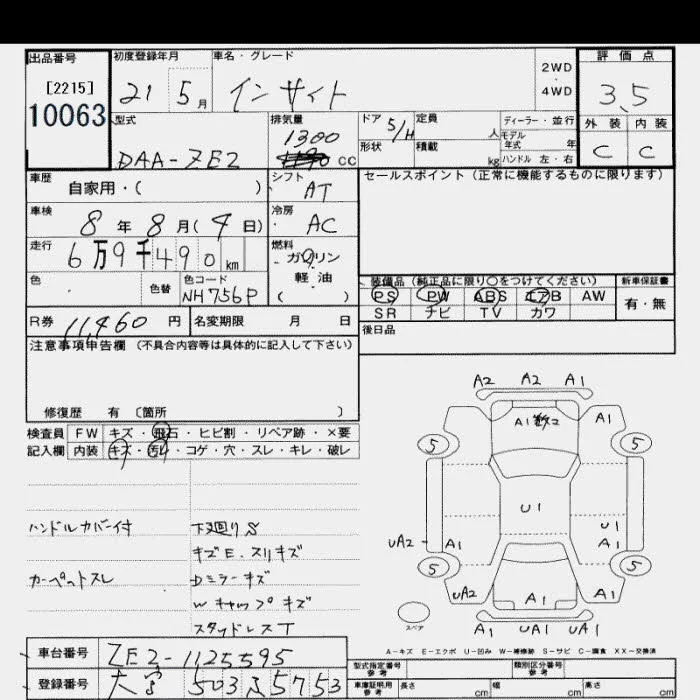 出品番号
[2215]
10063
初度登録年月
21 5月
車名・グレード
インサイト
2WD
・
4WD
評価点
3.5
外装 内装
C C
型式
DAA-ZE2
排気量
1300
cc
ドア 5/H
定員 人
形状
積載 kg
ディーラー・並行
モデル年式 年
ハンドル 左・右
車歴
自家用・( )
シフト
AT
セールスポイント (正常に機能するものに限ります)
車検
8年8月(4日)
冷房
AC
走行
6万9千490km
燃料
ガソリン
軽油
( )
色
色替
色コード
NH756P
装備品 (純正品に限り〇をつけてください)
PS PW ABS エアB AW
SR ナビ TV カワ
新車保証書
有・無
R券 11,460円
名変期限 月 日
後日品
注意事項申告欄 (不具合内容等は具体的に記入して下さい)
修復歴 有 〔箇所 〕
検査員
記入欄
FW キズ・飛石・ヒビ割・リペア跡・×要
内装 キズ・汚レ・コゲ・穴・スレ・キレ・破レ
ハンドルカバー付
カーペットスレ
下廻りS
キズE.スリキズ
Dミラーキズ
Wキャップキズ
スタッドレスT
A2 A2 A1
A1 2
A1
5 5
U1
U1
UA2 A1
A1
5 5
UA2 A1 A1
A1 UA1 UA1
スペア
A-キズ E-エクボ U-凹み W-補修跡 S-サビ C-腐食 XX-交換済
車台番号
ZE2-1125595
登録番号
大宮 503 ふ 5753
型式指定番号
参考
類別区分番号
参考
車庫証明用
参考
長さ cm
幅 cm
高さ cm